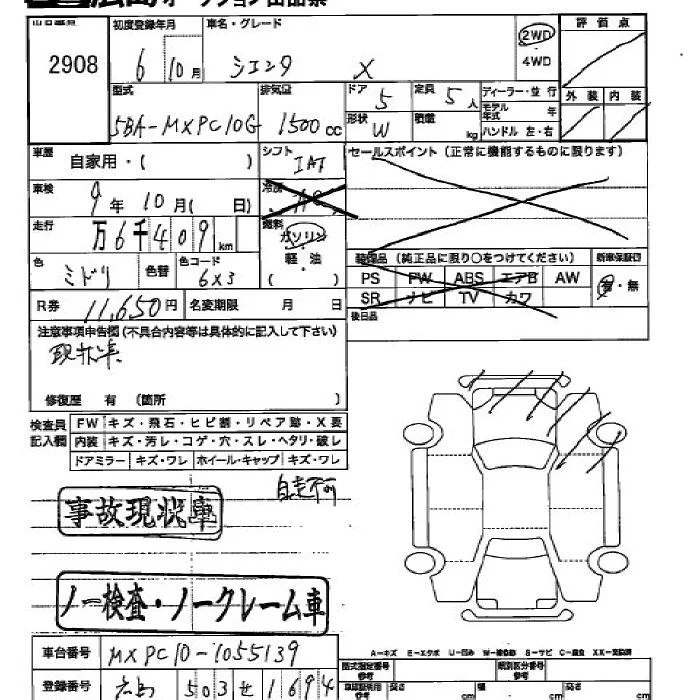 2908
初度登録年月
車名・グレード
6 10月
シエンタ X
2WD
・
4WD
評価点
型式
5BA-MXPC10G
排気量
1500cc
ドア
5
定員
5人
形状
W
積載
kg
ディーラー・並 行
モデル年式 年
ハンドル 左・右
外装 内装
車歴
自家用・( )
シフト
IAT
セールスポイント(正常に機能するものに限ります)
車検
9年10月( 日)
冷房
AC
走行
万6千409km
燃料
ガソリン
・
軽・油
( )
色
ミドリ
色替
色コード
6X3
装備品(純正品に限り○をつけてください)
新車保証書
PS PW ABS エアB AW
SR ナビ TV カワ
有・無
R券 11,650円 名変期限 月 日
後日品
注意事項申告欄(不具合内容等は具体的に記入して下さい)
修復歴 有 (箇所 )
検査員記入欄
FW キズ・飛石・ヒビ割・リペア跡・X要
内装 キズ・汚レ・コゲ・穴・スレ・ヘタリ・破レ
ドアミラー キズ・ワレ ホイール・キャップ キズ・ワレ
自走不可
事故現状車
ノー検査・ノークレーム車
車台番号 MXPC10-1055139
登録番号 広島 503せ1694
型式指定番号
類別区分番号
長さ cm 幅 cm 高さ cm